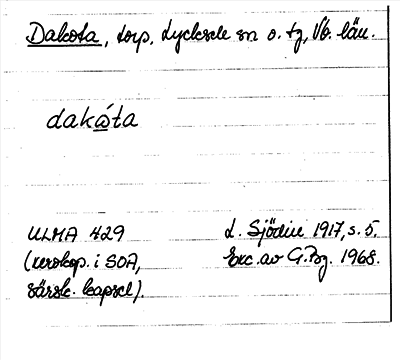 Dakota, torp, Lycksele sn o. tg, Vb. län.
dakáta
ULMA 429
(xerokop. i SOA,
särsk. kapsel).
L. Sjödin 1917, s. 5.
Exc. av G. Bg. 1968.